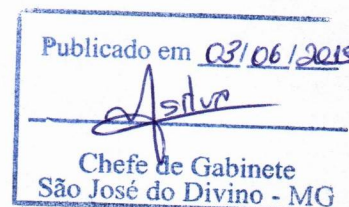 Publicado em 03/06/2019
Chefe de Gabinete
São José do Divino - MG